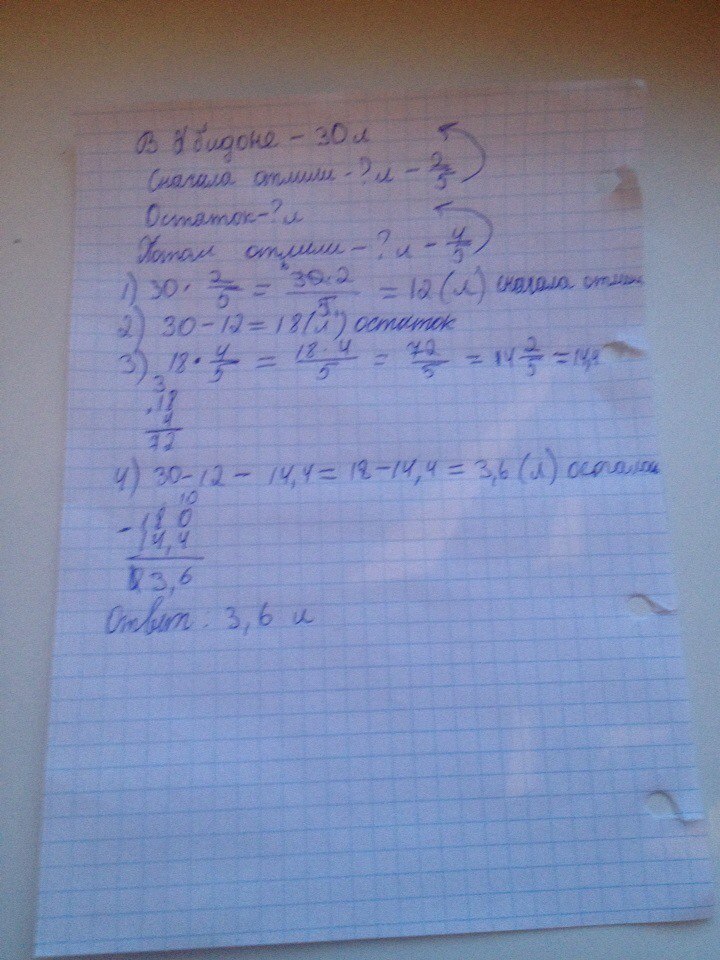 В бидоне - 30 л
Сначала отлили - ? л - 2/5
Остаток - ? л
Потом отлили - ? л - 4/5
1) 30 · 2/5 = 30·2/5 = 12 (л) сначала отлили
2) 30 - 12 = 18 (л) остаток
3) 18 · 4/5 = 18·4/5 = 72/5 = 14 2/5 = 14,4
3
18
72
4) 30 - 12 - 14,4 = 18 - 14,4 = 3,6 (л) осталось
10
- 18 0
14,4
3,6
Ответ. 3,6 л